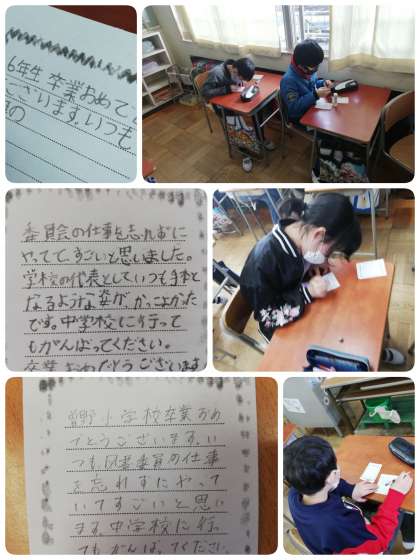 6年生 卒業おめて
ございます。いつも
の
委員会の仕事を忘れずに
やっててすごいと思いました。
学校の代表としていつも手本と
なるような姿が、かっこよかった
です。中学校に行って
もがんばってください。
卒業おめでとうございます
曽野小学校卒業おめ
でとうございます。い
つも図書委員の仕事
を忘れずにやって
いてすごいと思い
ます。中学校に行っ
てもがんばってください